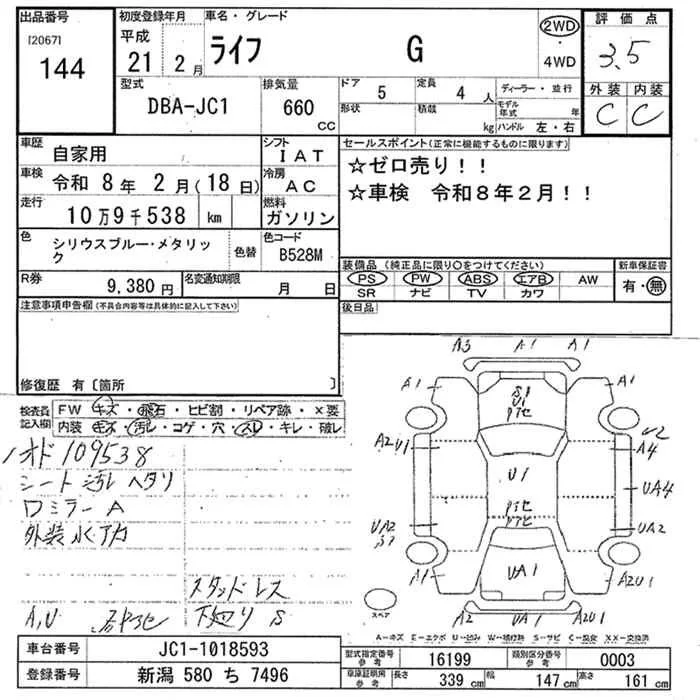 出品番号
[2067]
144
初度登録年月
平成
21 2月
車名・グレード
ライフ G
2WD
・
4WD
評価点
3.5
外装 内装
C C
型式
DBA-JC1
排気量
660 CC
ドア 5
形状
定員 4 人
積載 kg
ディーラー・並行
モデル年式 年
ハンドル 左・右
車歴
自家用
シフト
IAT
車検 令和 8年 2月(18日)
冷房
AC
走行
10万9千538 km
燃料
ガソリン
色
シリウスブルー・メタリック
色替
色コード
B528M
R券
9,380円
名変通知期限
月 日
セールスポイント(正常に機能するものに限ります)
☆ゼロ売り!!
☆車検 令和8年2月!!
装備品(純正品に限り〇をつけてください)
PS PW ABS エアB AW
SR ナビ TV カワ
新車保証書
有・無
後日品
注意事項申告欄(不具合内容等は具体的に記入して下さい)
修復歴 有〔箇所 〕
検査員記入欄
FW キズ・飛石・ヒビ割・リペア跡・×要
内装 キズ・汚レ・コゲ・穴・スレ・キレ・破レ
メオド 109538
シート汚レ ヘタリ
ワミラー A
外装水アカ
スタッドレス
A,U
下廻り S
A3 A1 A1
A1 A1
S1
U1
U2
A2U1 A4
U1
UA4
UA2
S1
UA2
UA1
A1 A2U1
A2 A1 A2U1
スペア
A−キズ E−エクボ U−凹み W−補修跡 S−サビ C−腐食 XX−交換済
車台番号
JC1-1018593
登録番号
新潟 580 ち 7496
型式指定番号
参考
16199
類別区分番号
参考
0003
車庫証明用
参考
長さ 339 cm 幅 147 cm 高さ 161 cm